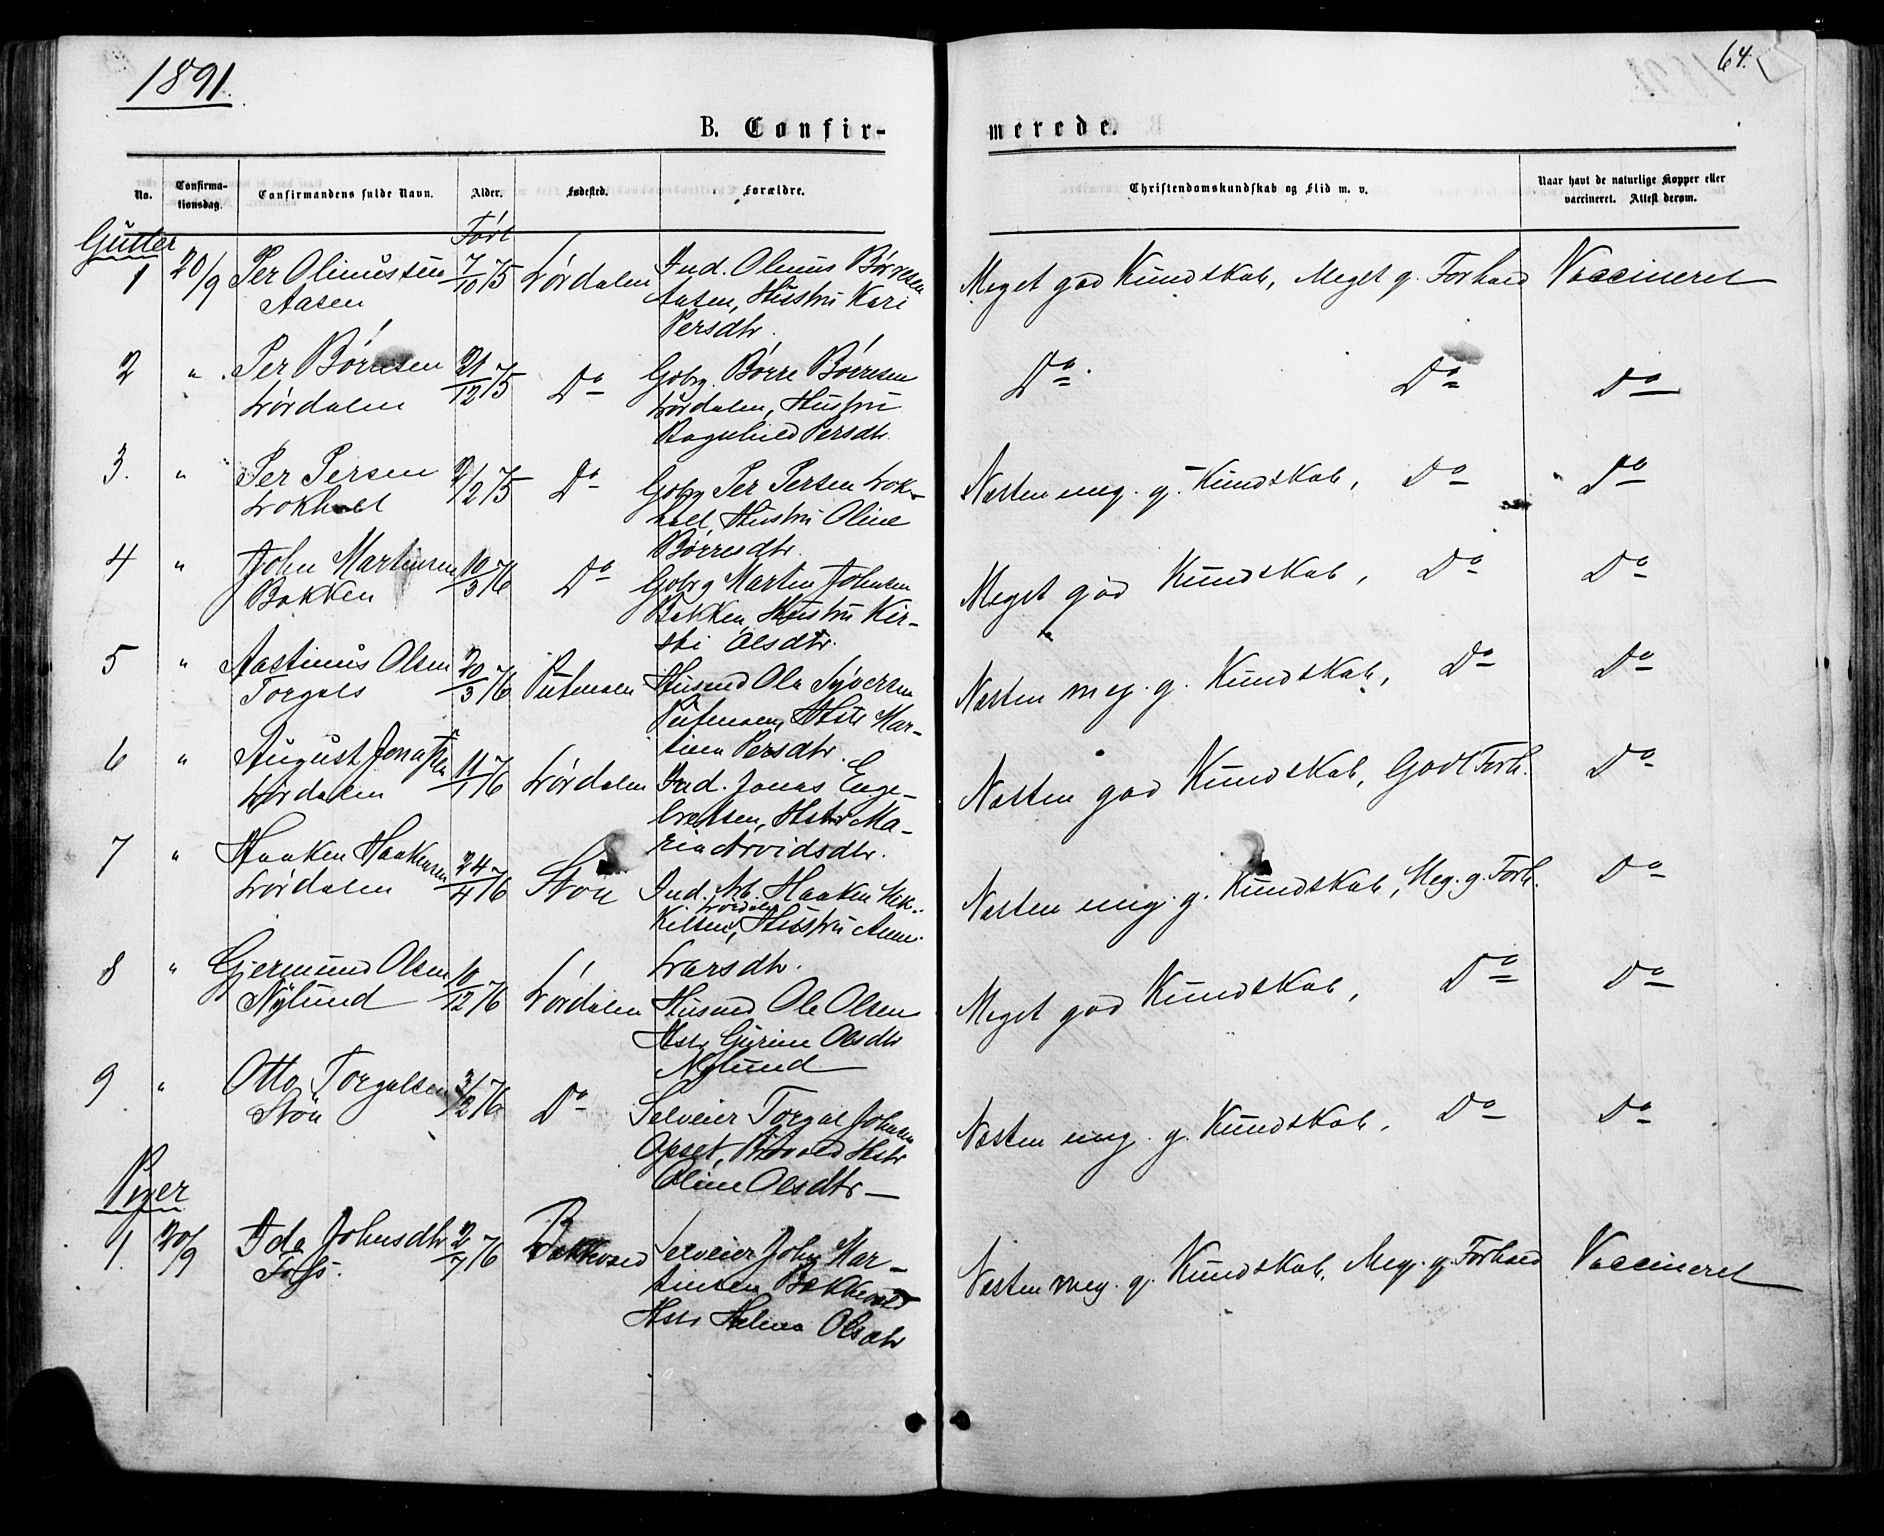 1891.
64.
B. Confir-
merede.
No.
Confirma-
tionsdag.
Confirmandens fulde Navn.
Alder.
Fødested.
Forældre.
Christendomskundskab og Flid m. v.
Naar havt de naturlige Kopper eller
vaccineret. Attest derom.
Gutter
Født
1 20/9 Per Olinussen 7/10 75 Lørdalen Ind. Olinus Børresen Meget god Kundskab, Meget g. Forhold Vaccineret
Aasen Aasen, Hustru Kari
Persdtr.
2 " Per Børresen 21/12 75 Do Gbrg. Børre Børresen Do Do Do
Lørdalen Lørdalen, Hustru
Ragnhild Persdtr.
3. " Per Persen 2/12 75 Do Gbrg Per Persen Lok- Næsten meg. g. Kundskab, Do Do
Lokholt holt, Hustru Oline
Børresdtr.
4 " John Martinsen 10/3 76 Do Gbrg Martin Johnsen Meget god Kundskab, Do Do
Bakken Bakken, Hustru Kir-
sti Olsdtr.
5 " Aastinus Olsen 20/3 76 Husmd Ole Syversen Næsten meg. g. Kundskab, Do Do
Torgals Hstr Mar-
tina Persdtr.
6 " August Jonassen 11/1 76 Lørdalen Ind. Jonas Enge- Næsten god Kundskab, Godt Forh. Do
Lørdalen bretsen, Hstr Ma-
ria Arvidsdtr.
7 " Haaken Haakensen 24/4 76 Støa Ind. Arb. Haaken Mik- Næsten meg. g. Kundskab, Meg. g. Forh. Do
Lørdalen Lørdalen
kelsen, Hustru Anne
Larsdtr.
8 " Gjermund Olsen 10/12 76 Lørdalen Husmd Ole Olsen Meget god Kundskab, Do Do
Nylund Hstr Gurine Olsdtr
Nylund
9 " Otto Torgalsen 3/12 76 Do Selveier Torgal Johnsen Næsten meg. g. Kundskab, Do Do
Støa Opset, Hstr
Oline Olsdtr
Piger
1. 20/9 Ida Johnsdtr 2/7 76 Bakkevold Selveier John Mar- Næsten meg. g. Kundskab, Meg. g. Forhold Vaccineret
Foss. tinsen Bakkevold
Hstr Helena Olsdtr